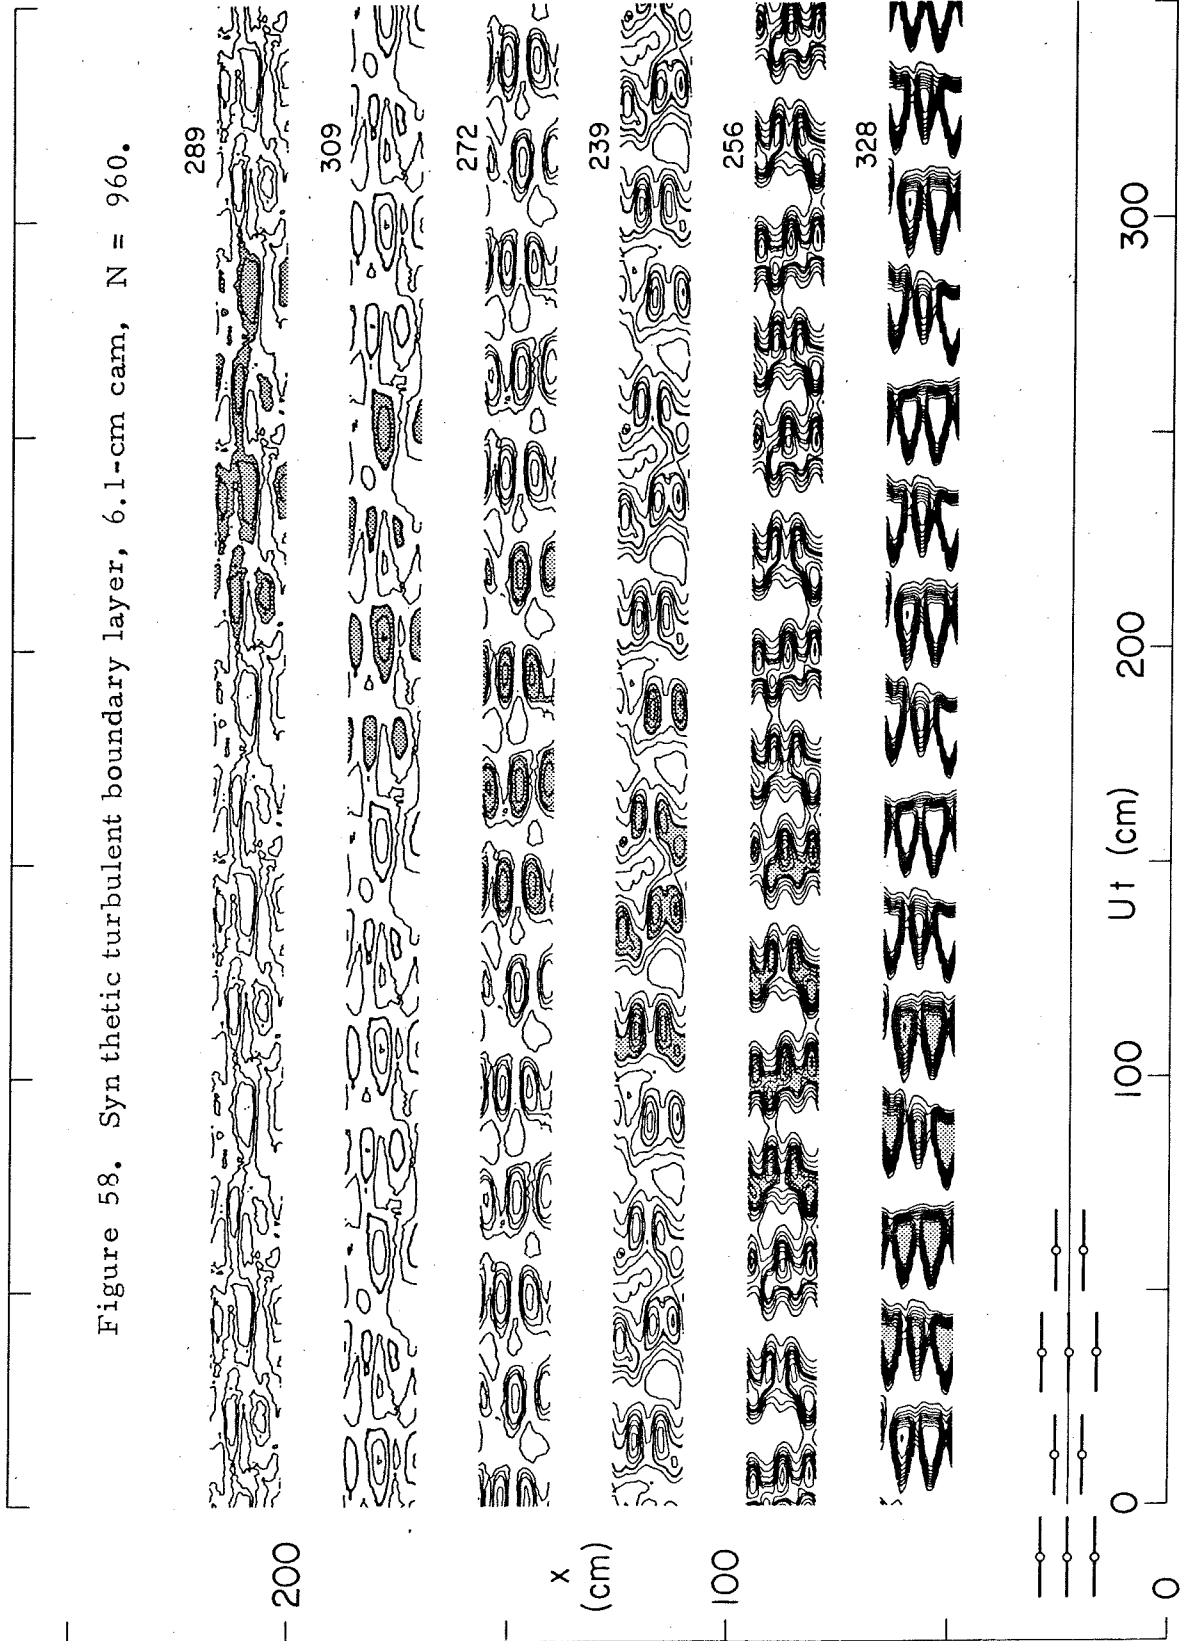 Figure 58. Syn thetic turbulent boundary layer, 6.1-cm cam, N = 960.
289
309
272
239
256
328
200
x
(cm)
100
0
0
100
200
300
Ut (cm)